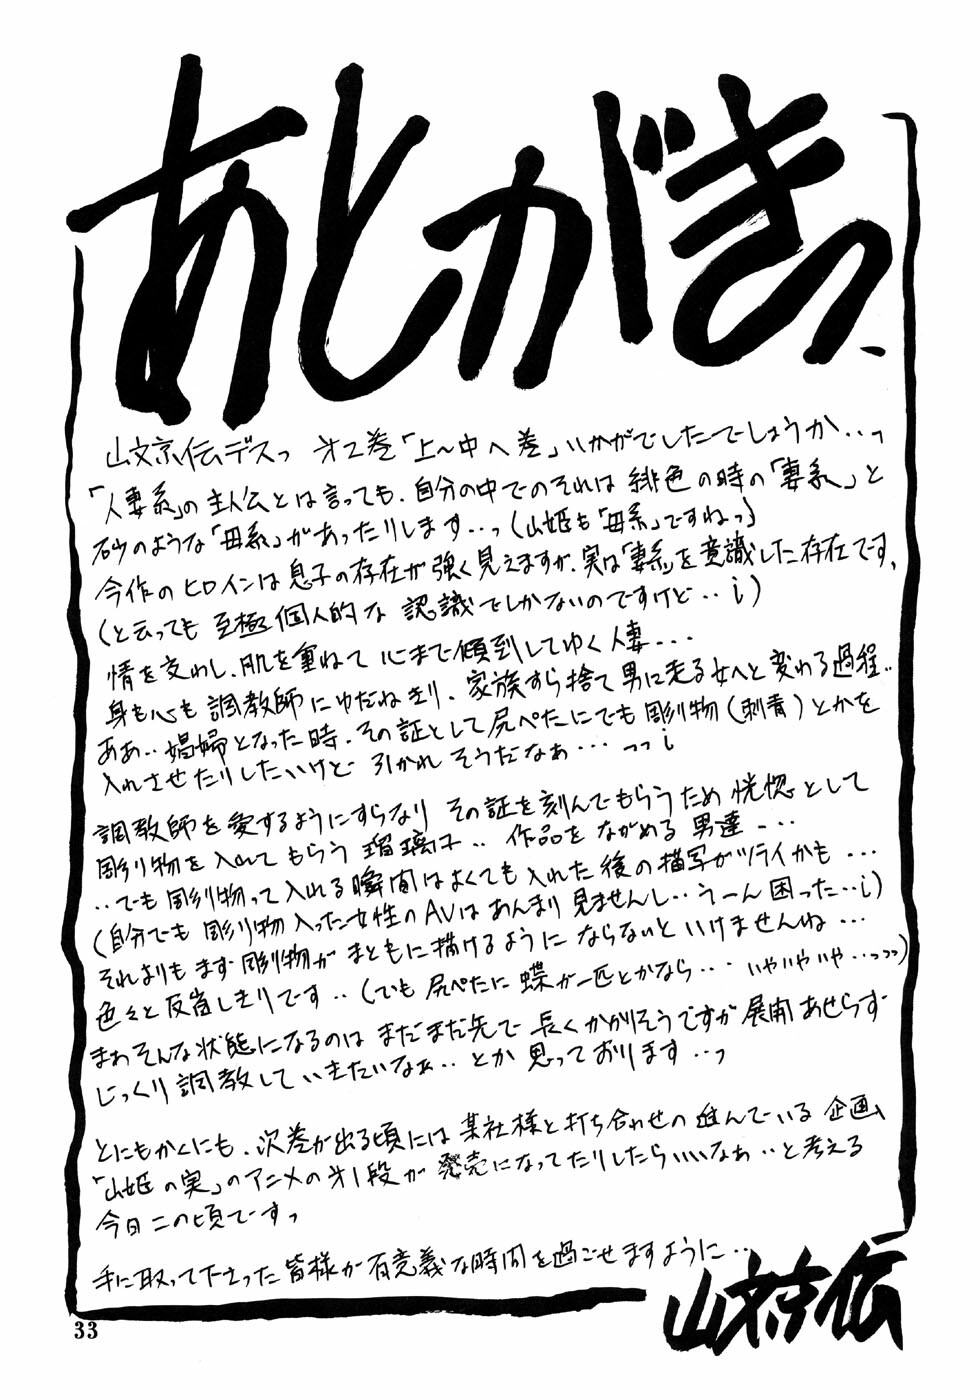 あとがきっ
山文京伝デスっ 才2巻「上〜中へ巻」いかがでしたでしょうか‥っ
「人妻系」の主人公とは言っても、自分の中でのそれは 緋色の時の「妻系」と
砂のような「母系」があったりします‥っ(山姫も「母系」ですねっ)
今作のヒロインは息子の存在が強く見えますが、実は「妻系」を意識した存在です、
(と云っても 至極個人的な 認識でしかないのですけど‥i)
情を交わし、肌を重ねて 心まで傾倒してゆく人妻‥‥
身も心も 調教師にゆだねきり、家族すら捨て男に走る女へと変わる過程‥
ああ‥娼婦となった時、その証として尻ぺたにでも 彫り物(刺青)とかを
入れさせたりしたいけど 引かれそうだなぁ‥‥っっi
調教師を愛するようにすらなり その証を刻んでもらうため 恍惚として
彫り物を入れてもらう 瑠璃子‥作品を ながめる 男達‥‥
‥でも 彫り物って入れる瞬間はよくても入れた後の描写がツライかも‥‥
(自分でも 彫り物入った女性のAVはあんまり見ませんし‥うーん困った‥i)
それよりもまず 彫り物が まともに描けるように ならないと いけませんね‥‥
色々と反省しきりです‥(でも 尻ぺたに 蝶が一匹とかなら‥‥いやいやいや‥っっっ)
まぁそんな状態になるのは まだまだ先で 長くかかりそうですが展開あせらず
じっくり調教していきたいなぁ‥とか 思っております‥っ
とにもかくにも、次巻が出る頃には 某社様と打ち合わせの進んでいる 企画
「山姫の実」のアニメの才1段が 発売になってたりしたらいいなぁ‥と考える
今日この頃ですっ
手に取って下さった皆様が有意義な時間を過ごせますように‥
山文京伝
33